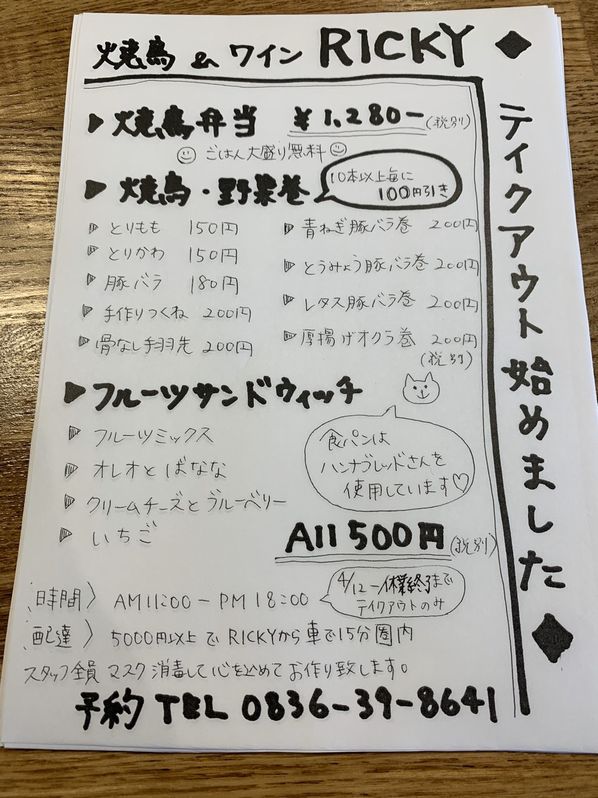 焼鳥 & ワイン RICKY
テイクアウト始めました
焼鳥弁当 ¥1,280-(税別)
ごはん大盛り無料
焼鳥・野菜巻
10本以上毎に
100円引き
とりもも 150円
とりかわ 150円
豚バラ 180円
手作りつくね 200円
骨なし手羽先 200円
青ねぎ豚バラ巻 200円
とうみょう豚バラ巻 200円
レタス豚バラ巻 200円
厚揚げオクラ巻 200円
(税別)
フルーツサンドウィッチ
フルーツミックス
オレオとばなな
クリームチーズとブルーベリー
いちご
食パンは
ハンナブレッドさんを
使用しています♡
All 500円(税別)
時間〉 AM11:00-PM18:00
4/12-休業終了まで
テイクアウトのみ
配達〉 5000円以上でRICKYから車で15分圏内
スタッフ全員マスク消毒して心を込めてお作り致します。
予約 TEL 0836-39-8641